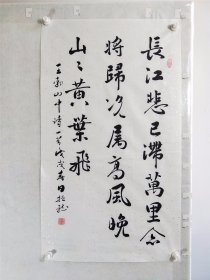 長江悲已滯萬里念
將歸况属高風晚
山〻黄葉飛
王勃山中诗一首戊戌春日